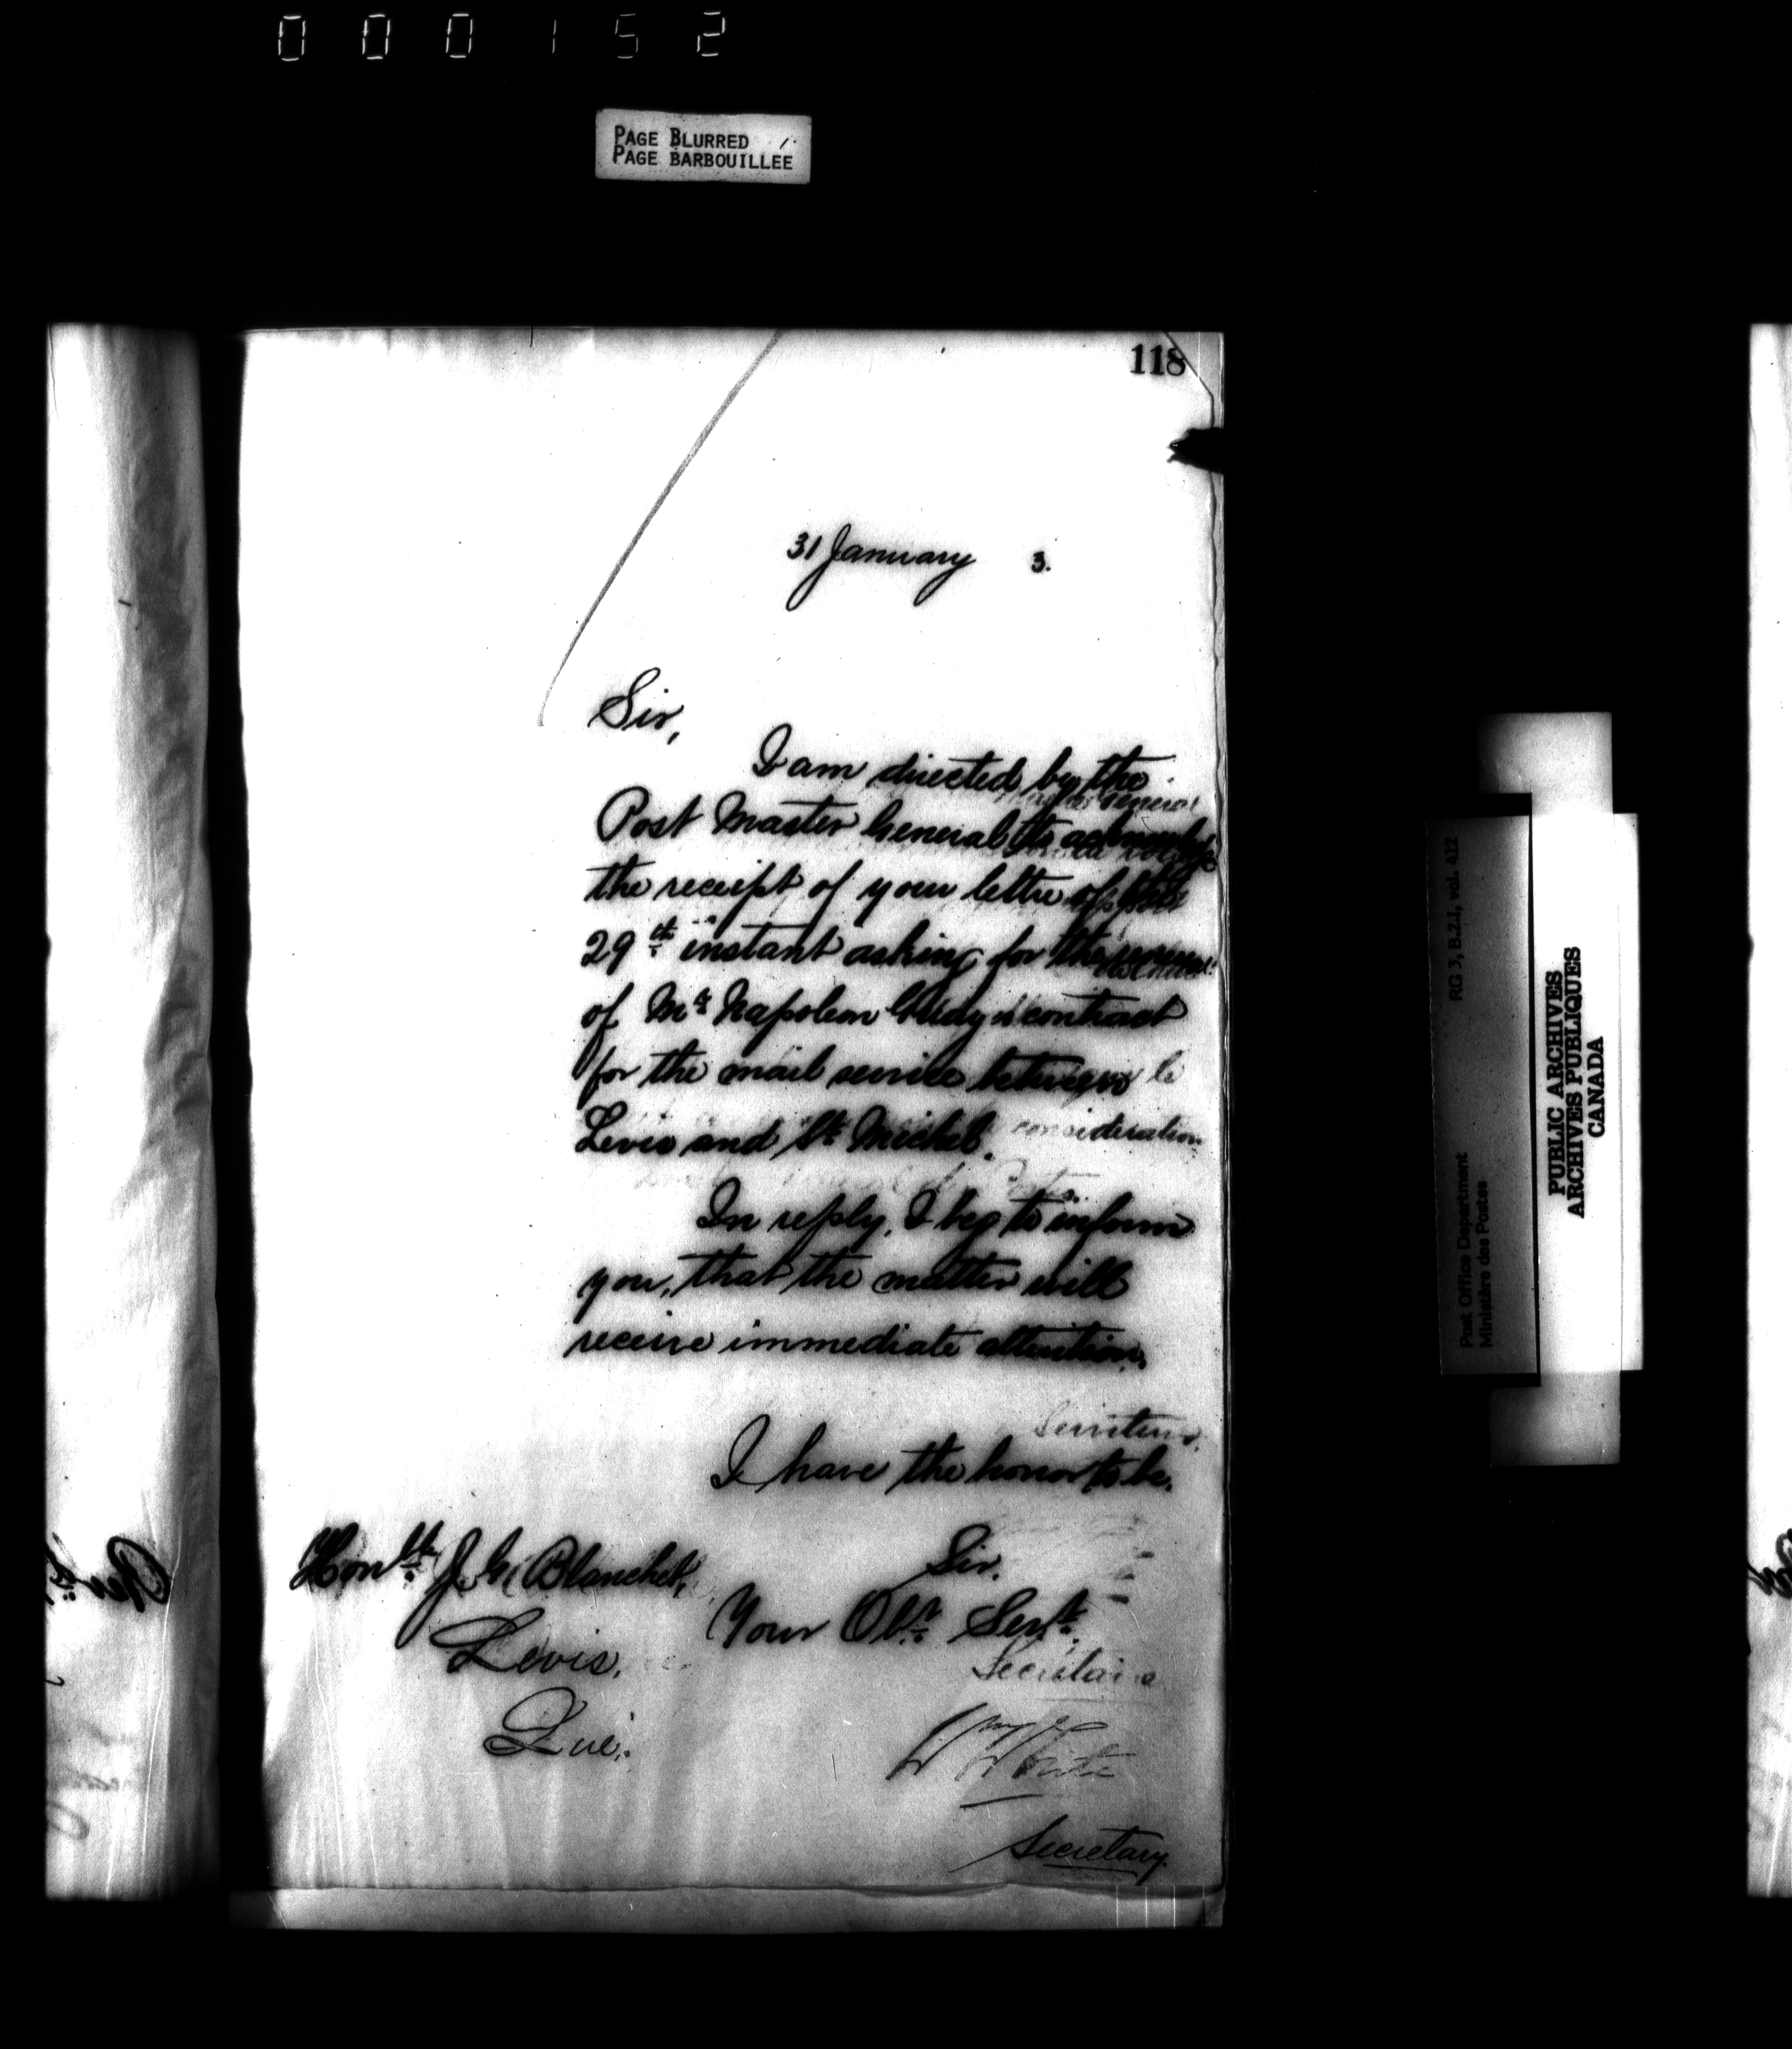 000152
PAGE BLURRED
PAGE BARBOUILLÉE
118
31 January 3.
Sir,
I am directed by the
Post Master General to acknowledge
the receipt of your letter of the
29th instant asking for the renewal
of Mr Napoleon contract
for the mail service between
Levis and St Michel.
In reply, I beg to inform
you, that the matter will
receive immediate attention.
I have the honor to be,
Sir,
Your Obt Servt
Honble J. G. Blanchet,
Levis,
Que.
Secrétaire
Wm White
Secretary.
consideration
RG 3, B.2.I, vol. 412
Post Office Department
Ministère des Postes
PUBLIC ARCHIVES
ARCHIVES PUBLIQUES
CANADA